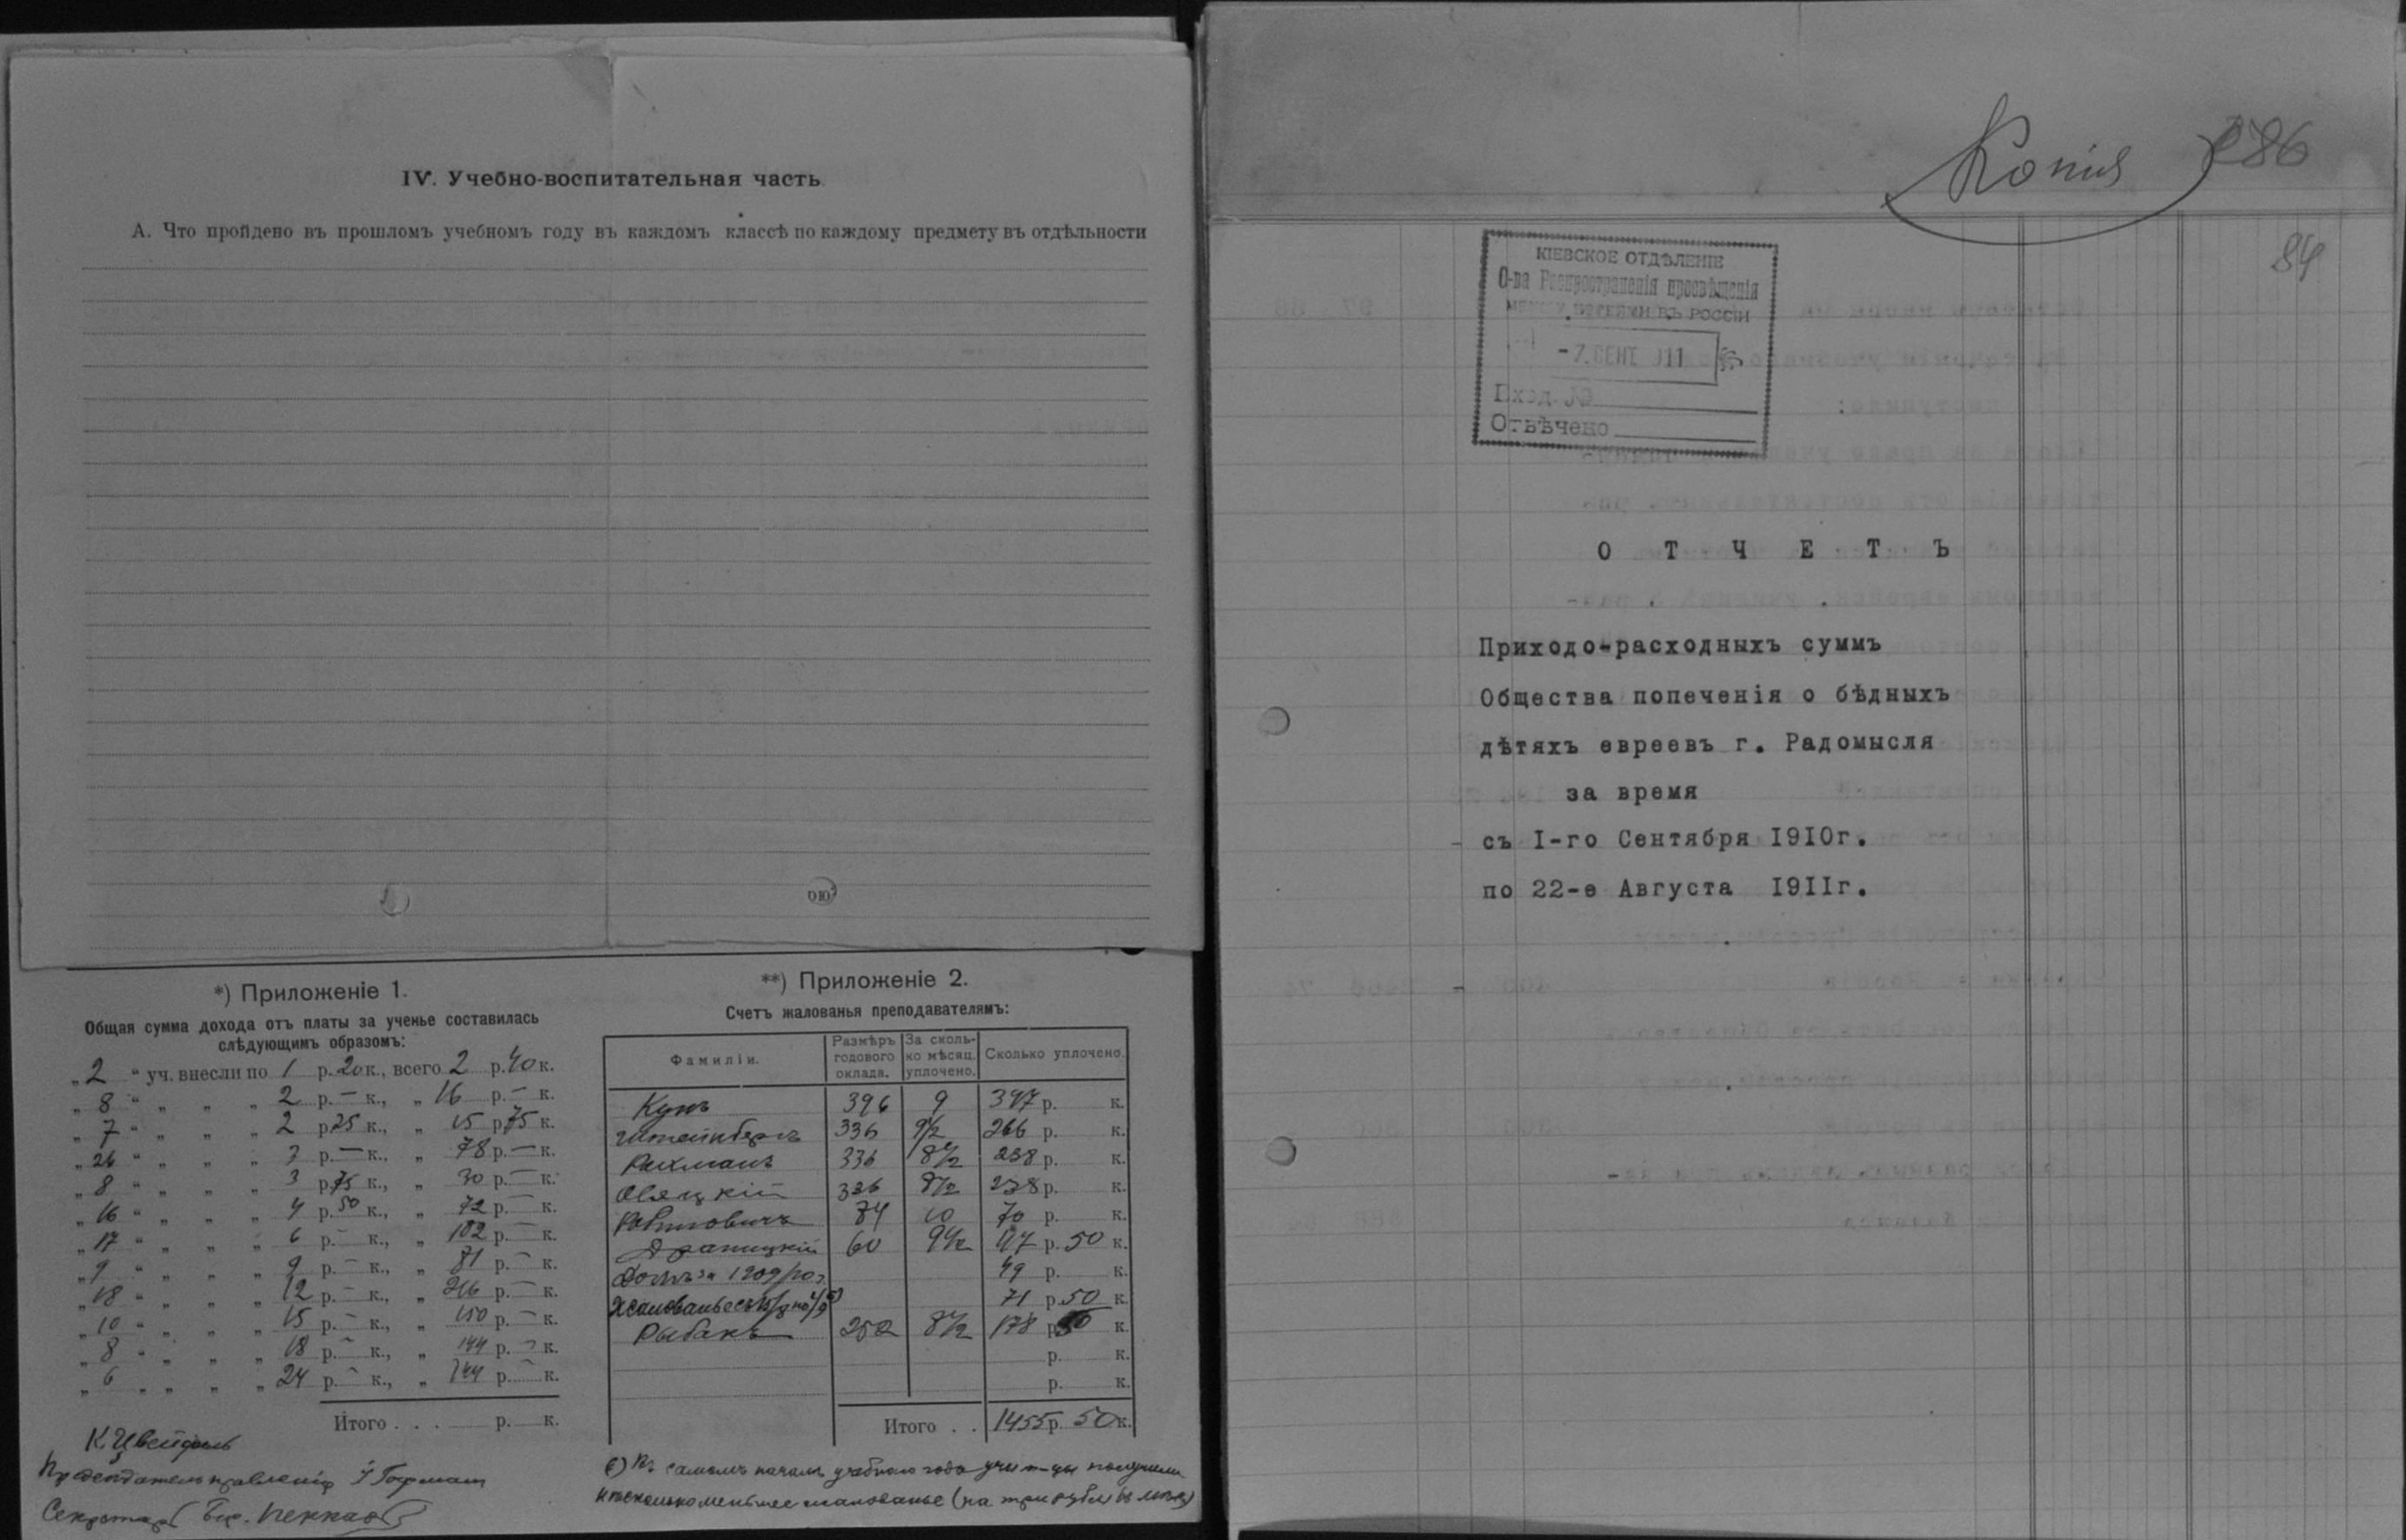 IV. Учебно-воспитательная часть
А. Что пройдено въ прошломъ учебномъ году въ каждомъ классѣ по каждому предмету въ отдѣльности
*) Приложеніе 1.
Общая сумма дохода отъ платы за ученье составилась
слѣдующимъ образомъ:
„ 2 “ уч. внесли по 1 р. 20 к., всего 2 р. 40 к.
„ 8 “ „ „ „ 2 р. — к., „ 16 р. — к.
„ 7 “ „ „ „ 2 р. 25 к., „ 15 р. 75 к.
„ 26 “ „ „ „ 3 р. — к., „ 78 р. — к.
„ 8 “ „ „ „ 3 р. 75 к., „ 30 р. — к.
„ 16 “ „ „ „ 4 р. 50 к., „ 72 р. — к.
„ 17 “ „ „ „ 6 р. — к., „ 102 р. — к.
„ 9 “ „ „ „ 9 р. — к., „ 81 р. — к.
„ 18 “ „ „ „ 12 р. — к., „ 216 р. — к.
„ 10 “ „ „ „ 15 р. — к., „ 150 р. — к.
„ 8 “ „ „ „ 18 р. — к., „ 144 р. — к.
„ 6 „ „ „ „ 24 р. — к., „ 144 р. к.
Итого . . . р. к.
Предсѣдатель правленія Гофман
Секретарь
**) Приложеніе 2.
Счетъ жалованья преподавателямъ:
Фамиліи. Размѣръ годового оклада. За сколько мѣсяц. уплочено. Сколько уплочено.
Кунъ 396 9 р. к.
Штейнбергъ 336 9½ 266 р. к.
Рахманъ 336 8½ 238 р. к.
336 8½ 238 р. к.
Рабиновичъ 84 10 70 р. к.
60 9½ 47 р. 50 к.
за 1909/10 г. 49 р. к.
Жалованье 71 р. 50 к.
Рыбакъ 252 8½ 178 р. 50 к.
р. к.
р. к.
Итого . . 1455 р. 50 к.
въ самомъ началѣ учебнаго года получили
нѣсколько меньшее жалованье (на три рубля въ мѣс.)
Копія
286
84
КІЕВСКОЕ ОТДѢЛЕНІЕ
О-ва Распространенія просвѣщенія
МЕЖДУ ЕВРЕЯМИ ВЪ РОССІИ
-7. СЕНТ 911
Вход. №
Отвѣчено
О Т Ч Е Т Ъ
Приходо-расходныхъ суммъ
Общества попеченія о бѣдныхъ
дѣтяхъ евреевъ г. Радомысля
за время
съ I-го Сентября I9I0г.
по 22-е Августа I9IIг.